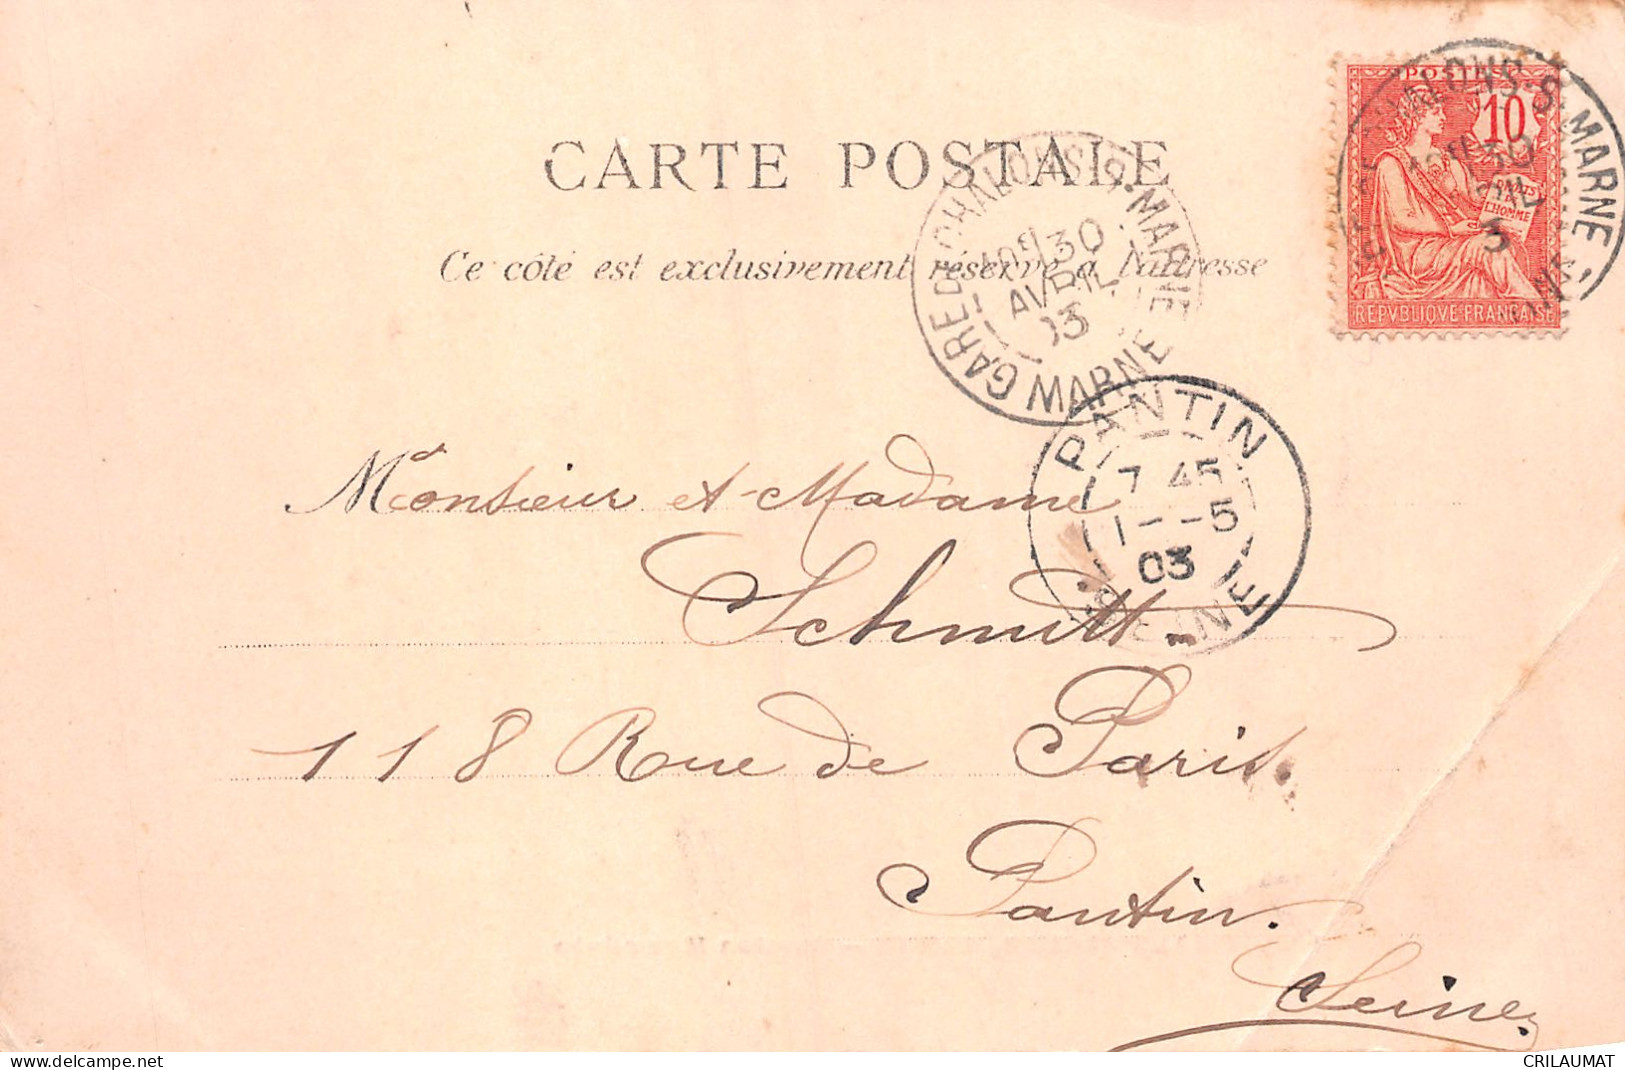 POSTES
10
DROITS
DE
L'HOMME
REPVBLIQVE FRANÇAISE
CARTE POSTALE
Ce côté est exclusivement réservé à l'adresse
GARE DE CHALONS-S-MARNE
30
AVRIL
03
MARNE
PANTIN
7 45
1--5
03
SEINE
Monsieur et Madame
Schmitt
118 Rue de Paris.
Pantin.
Seine
www.delcampe.net
CRILAUMAT